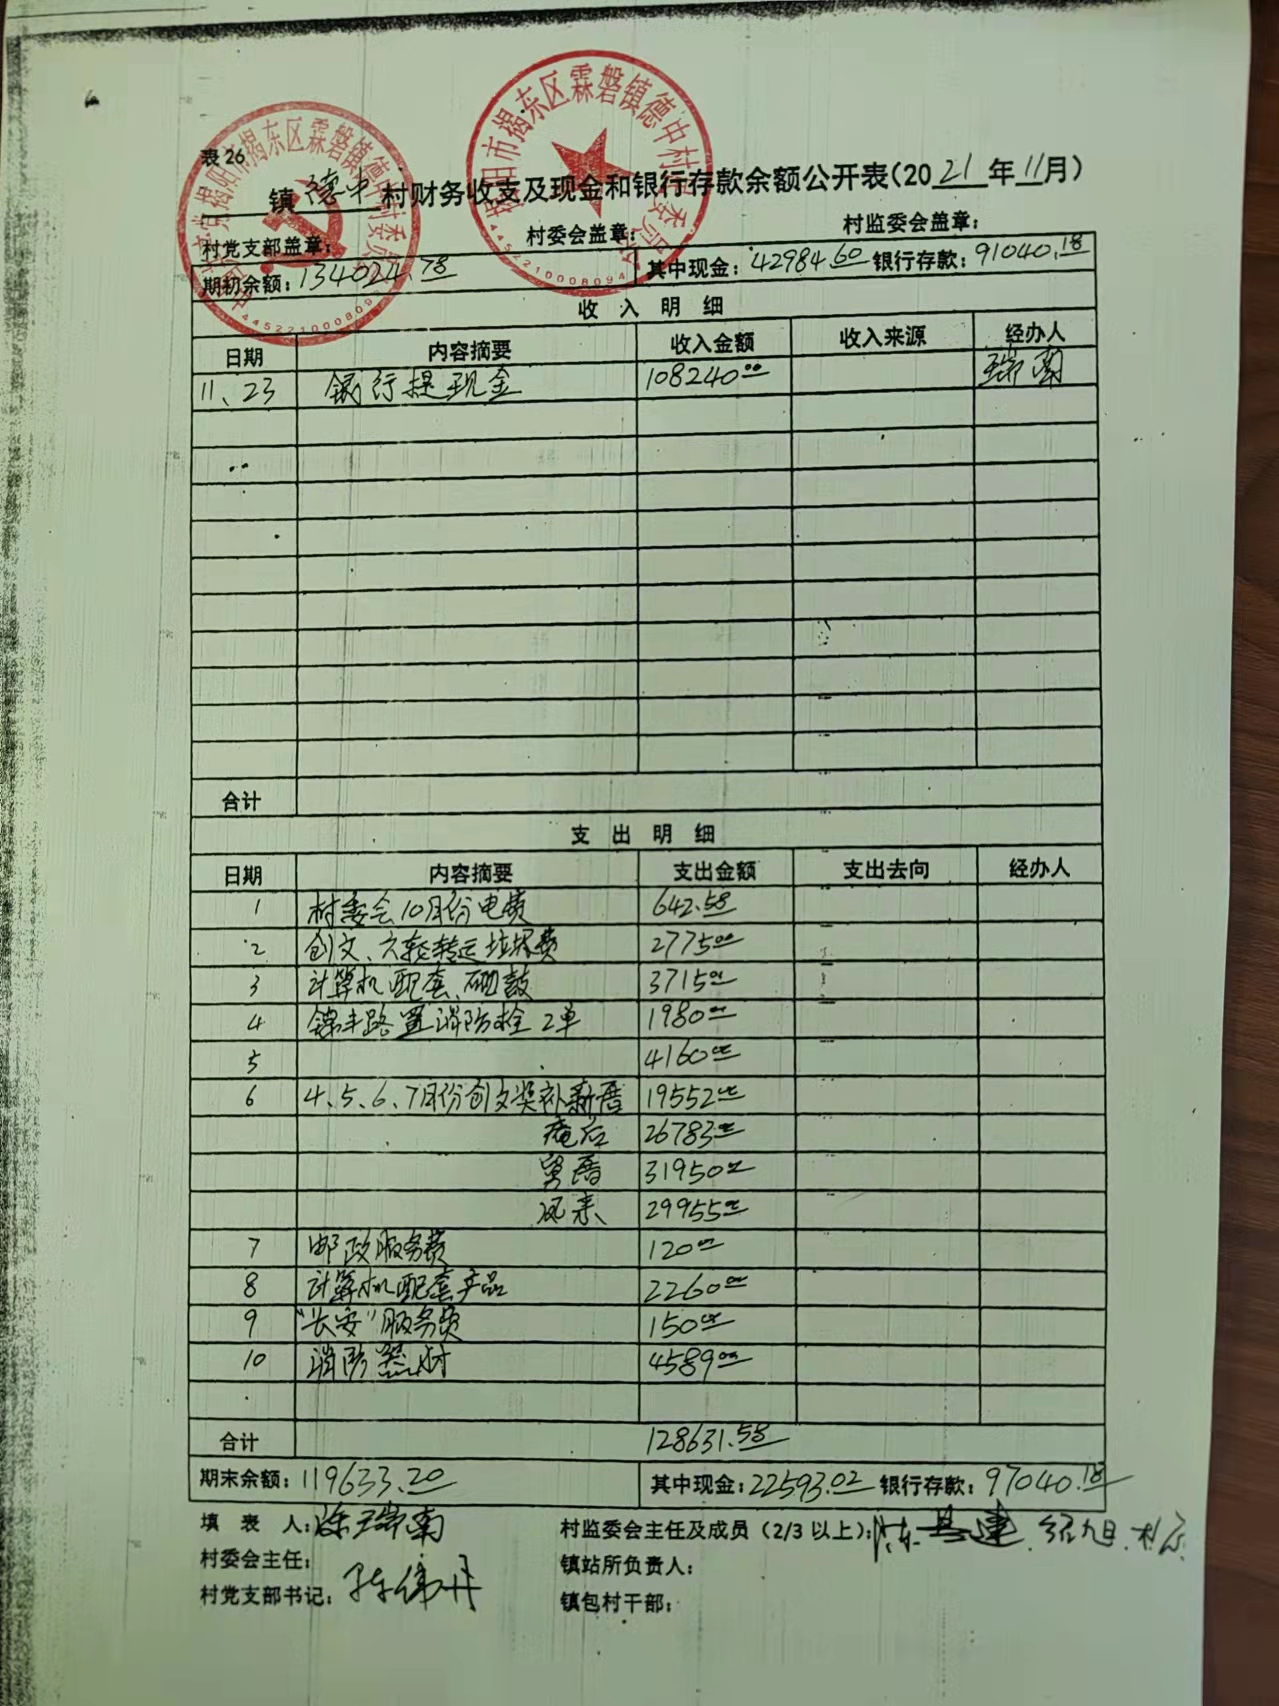 表26
镇 德中 村财务收支及现金和银行存款余额公开表(2021年11月)
村党支部盖章: 村委会盖章: 村监委会盖章:
期初余额:134024.78 其中现金:42984.60 银行存款:91040.18
收入明细
日期 内容摘要 收入金额 收入来源 经办人
11、23 银行提现金 108240.00 瑞南
合计
支出明细
日期 内容摘要 支出金额 支出去向 经办人
1 村委会10月份电费 642.58
2 创文、六轮转运垃圾费 2775.00
3 计算机配套、硒鼓 3715.00
4 锦丰路置消防栓2单 1980.00
5 4160.00
6 4、5、6、7月份创文奖补新厝 19552.00
庵后 26783.00
厝 31950.00
29955.00
7 邮政服务费 120.00
8 计算机配套产品 2260.00
9 "长安"服务费 150.00
10 消防器材 4589.00
合计 128631.58
期末余额:119633.20 其中现金:22593.02 银行存款:97040.18
填表人: 陈瑞南 村监委会主任及成员(2/3以上):
村委会主任: 镇站所负责人:
村党支部书记: 陈伟丹 镇包村干部:
揭阳市揭东区霖磐镇德中村委员会
445221000809